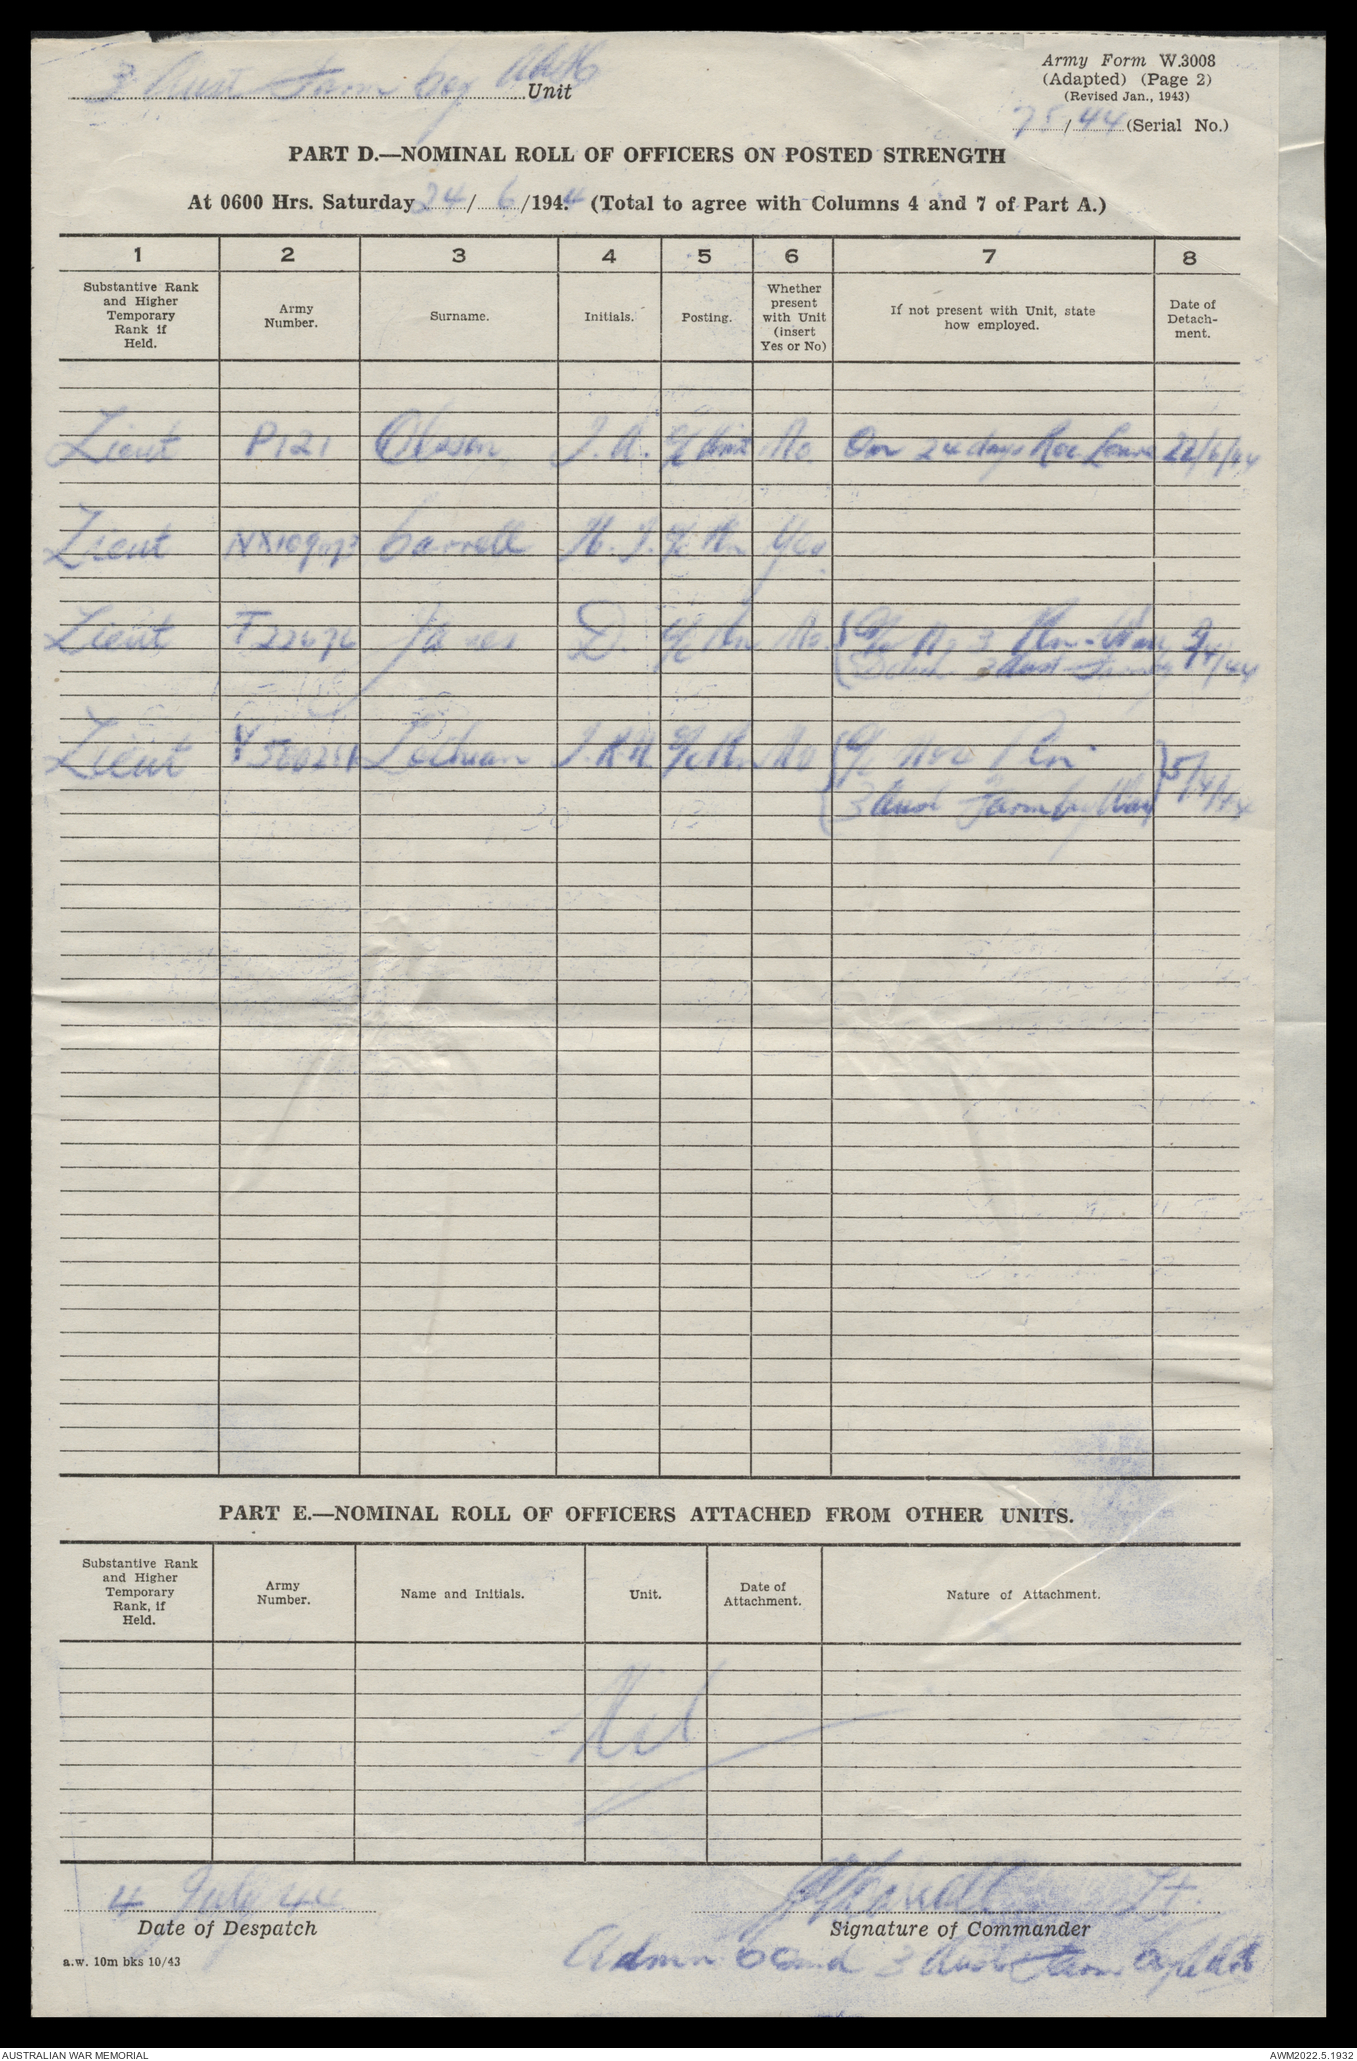 3 Aust Farm Coy AASC Unit
Army Form W.3008
(Adapted) (Page 2)
(Revised Jan., 1943)
75/44 (Serial No.)
PART D.—NOMINAL ROLL OF OFFICERS ON POSTED STRENGTH
At 0600 Hrs. Saturday 24/6/1944 (Total to agree with Columns 4 and 7 of Part A.)
1 2 3 4 5 6 7 8
Substantive Rank and Higher Temporary Rank if Held.
Army Number.
Surname.
Initials.
Posting.
Whether present with Unit (insert Yes or No)
If not present with Unit, state how employed.
Date of Detachment.
Lieut P121 J. A. No. On 24 days Rec Leave 22/6/44
Lieut Carroll H. J. O/c Pln Yes
Lieut T22676 James D. O/c Pln No. O/c No 3 Pln
3 Aust Farm Coy /4/44
Lieut J. R. N. O/c Pln No O/c No 2 Pln
3 Aust Farm Coy 5/4/44
PART E.—NOMINAL ROLL OF OFFICERS ATTACHED FROM OTHER UNITS.
Substantive Rank and Higher Temporary Rank, if Held.
Army Number.
Name and Initials.
Unit.
Date of Attachment.
Nature of Attachment.
Nil
4 July 44 Lt.
Date of Despatch
Signature of Commander
Admin Comd 3 Aust Farm Coy AASC
a.w. 10m bks 10/43
AUSTRALIAN WAR MEMORIAL
AWM2022.5.1932